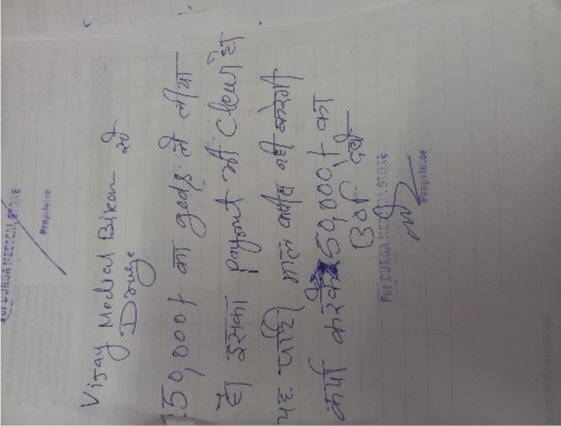 For DURGA MEDICAL STORE
Proprietor
Vijay Medical Bikan से
Drugs
150,000/ का gods ले लीया
है। इसका payment भी Clear है।
यह पार्टी माल वापीस नही करेगी
कृपा करके 50,000/ का
देवे
For DURGA MEDICAL STORE
Proprietor